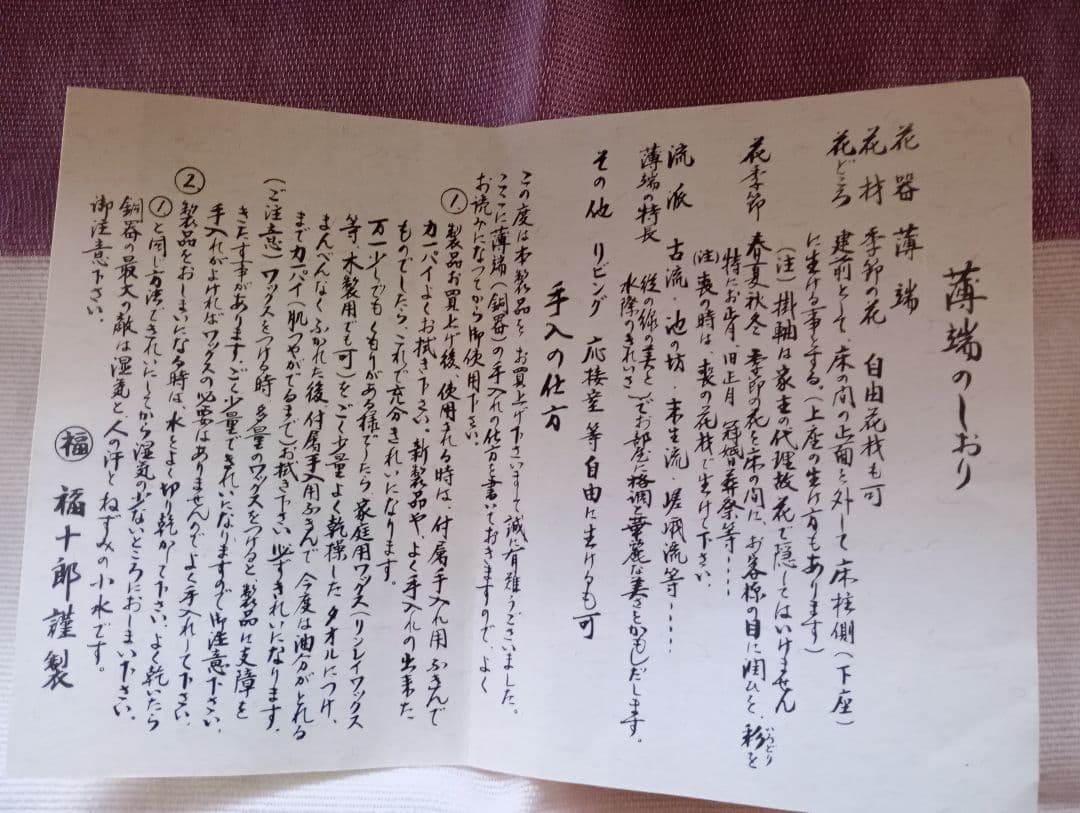 薄端のしおり
花器 薄端
花材 季節の花 自由花材も可
花どころ 建前として、床の間の正面を外して床柱側(下座)
に生ける事とする、(上座の生け方もあります)
(注)掛軸は家主の代理故花で隠してはいけません
花季節 春夏秋冬 季節の花を床の間に、お客様の目に潤ひを、彩を
いろどり
特にお正月、旧正月 冠婚葬祭等・・・・
(注)喪の時は、喪の花材で生けて下さい、
流派 古流・池の坊・未生流・嵯峨流等・・・・・
薄端の特長 (従の線の美と、水際のきれいさ)でお部屋に格調と華麗な美さをかもしだします。
その他 リビング 応接室 等自由に生けるも可
手入の仕方
この度は本製品を、お買上げ下さいまして誠に有難うございました。
ここに薄端(銅器)の手入れの仕方を書いておきますので、よく
お読みになつてから御使用下さい。
①、製品お買上げ後、使用される時は、付属手入れ用ふきんで
カラパイよくお拭き下さい。新製品や、よく手入れの出来た
ものでしたら、これで充分きれいになります。
万一少しでもくもりがある様でしたら、家庭用ワックス(リンレイワックス
等、木製用でも可)をごく少量よく乾操したタオルにつけ、
まんべんなくふかれた後、付属手入用ふきんで、今度は油分がとれる
までカラパイ(肌つやがでるまで)お拭き下さい必ずきれいになります、
(ご注意)ワックスをつける時、多量のワックスをつけると、製品に支障を
きたす事があります、ごく少量できれいになりますので御注意下さい、
手入れがよければワックスの必要はありませんのでよく手入れして下さい、
②、製品をおしまいになる時は、水をよく切り乾かして下さい、よく乾いたら
①と同じ方法できれいにしてから湿気の少ないところにおしまい下さい、
銅器の最大の敵は湿気と、人の汗とねずみの小水です。
御注意下さい。
福 福十郎謹製